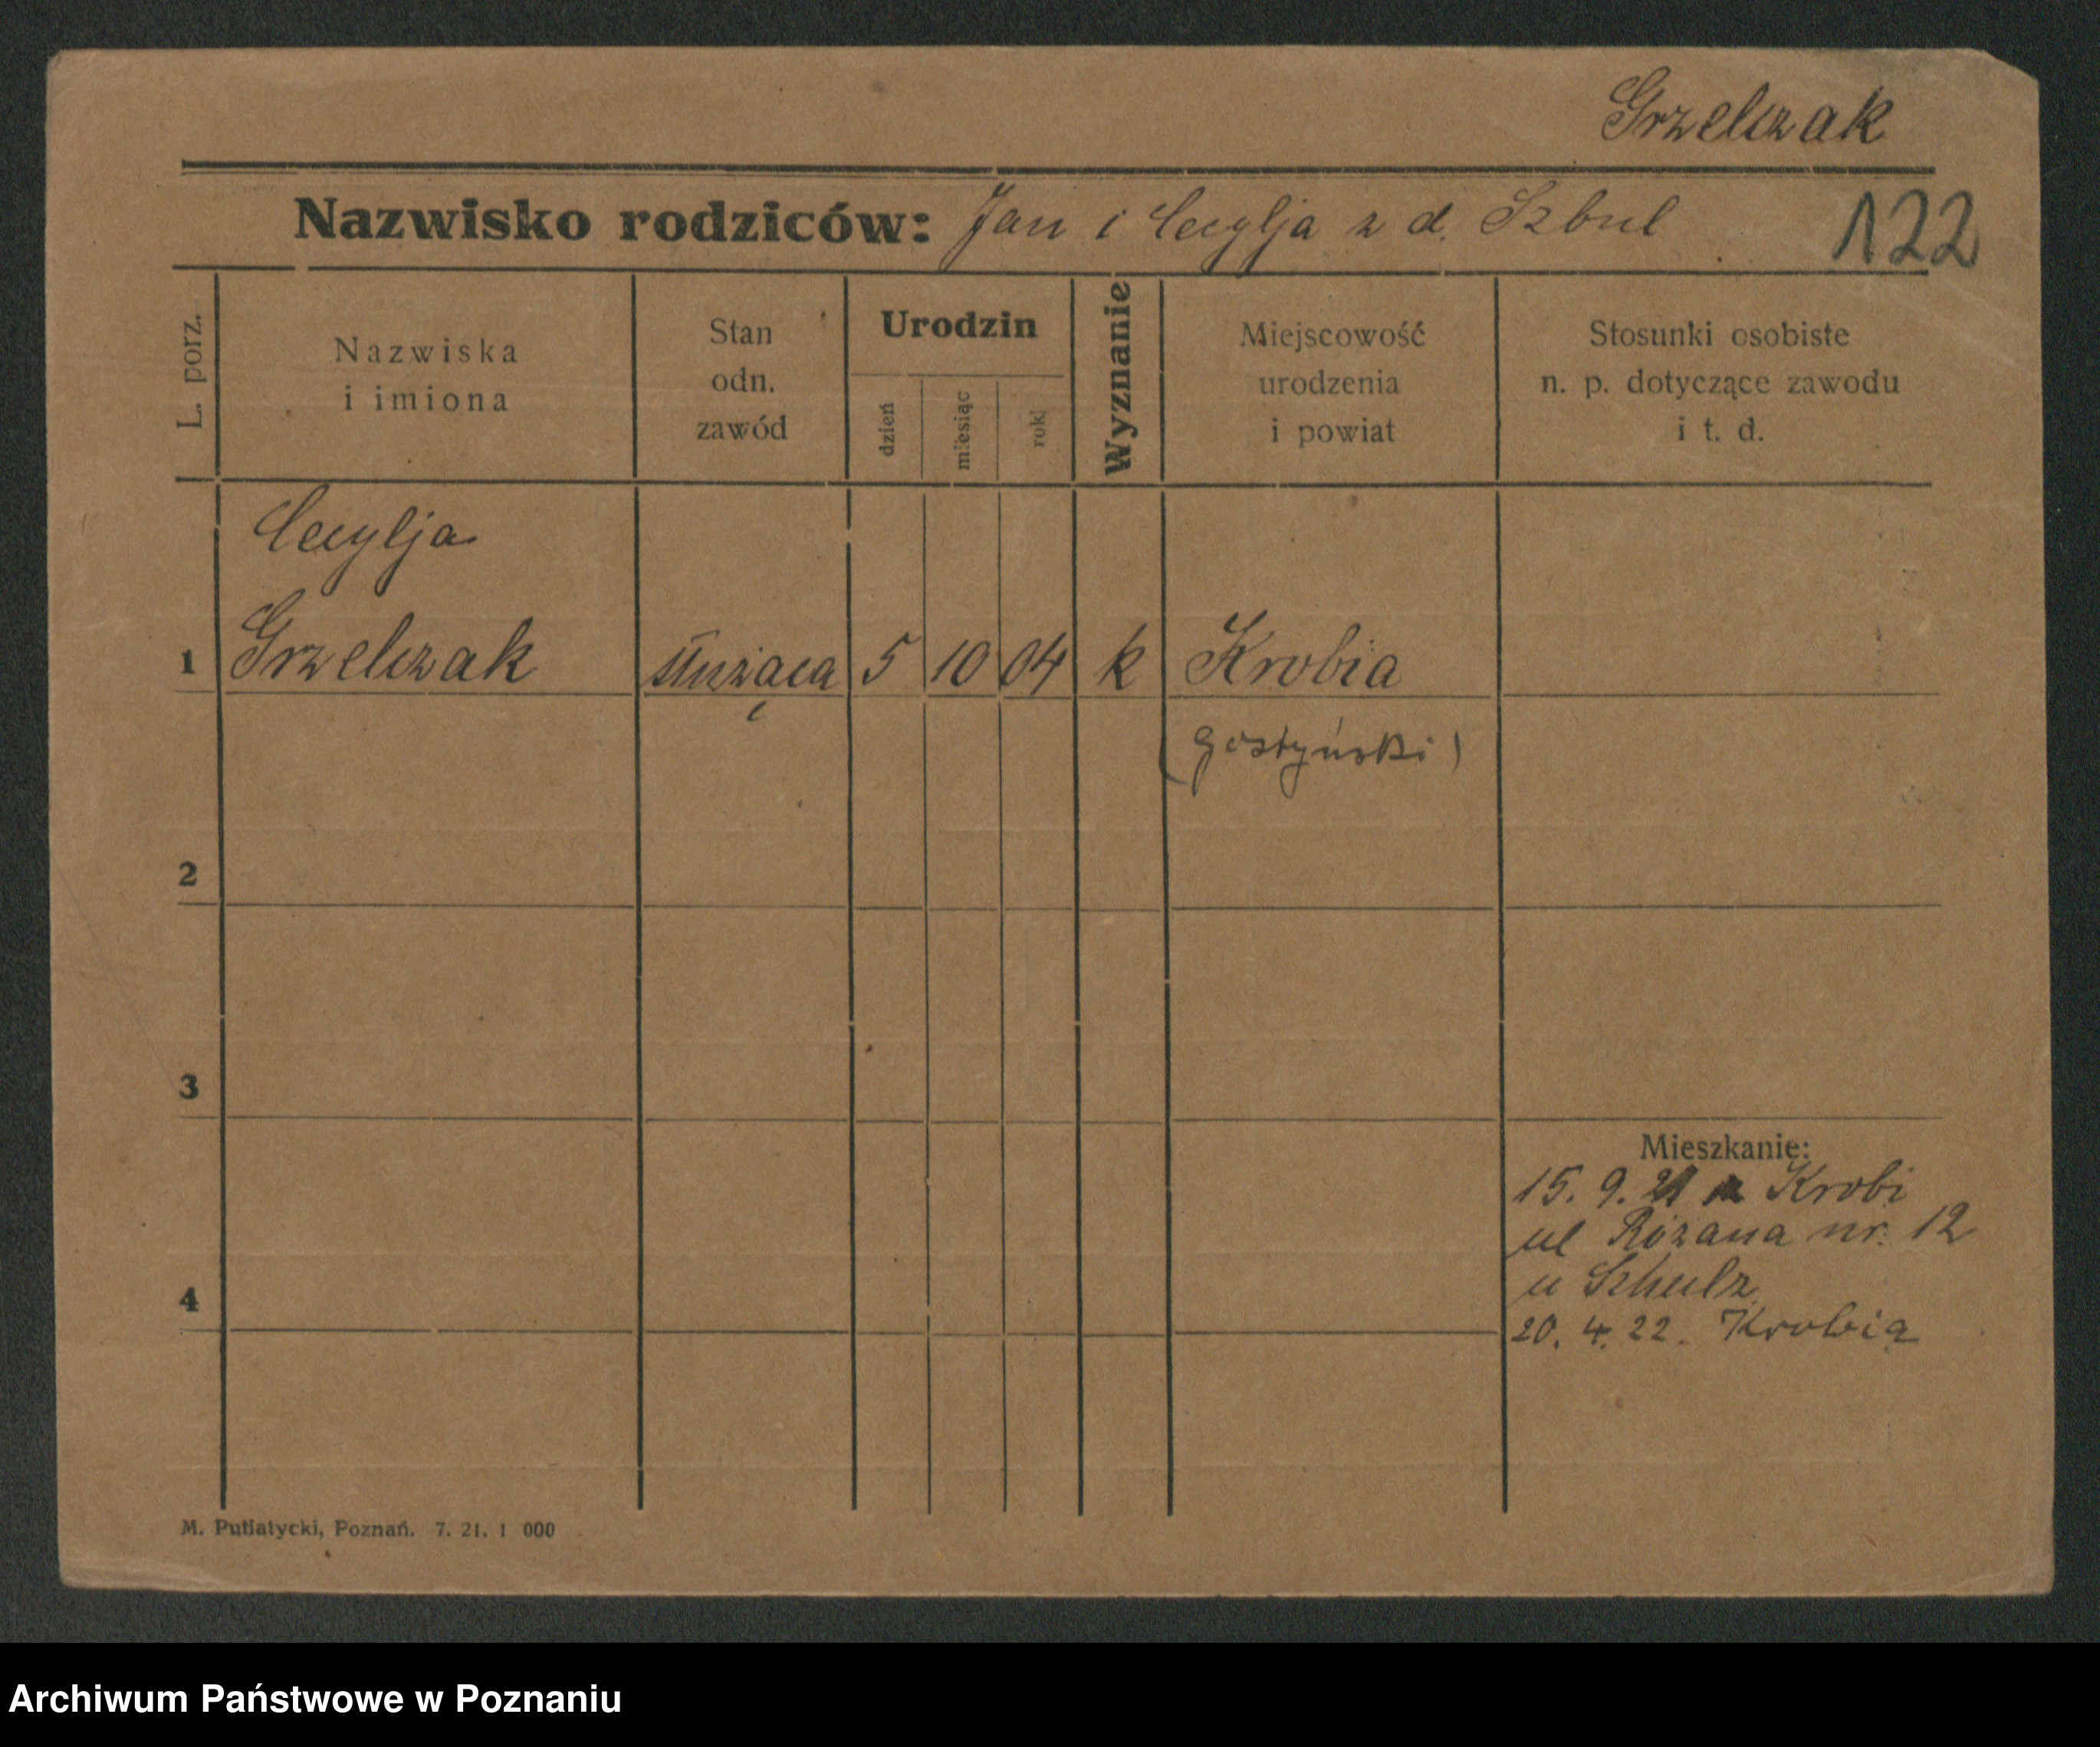 Grzelczak
Nazwisko rodziców: Jan i Cecylja z d. Szbul
122
L. porz.
Nazwiska
i imiona
Stan
odn.
zawód
Urodzin
dzień
miesiąc
rok
Wyznanie
Miejscowość
urodzenia
i powiat
Stosunki osobiste
n. p. dotyczące zawodu
i t. d.
Cecylja
1 Grzelczak służąca 5 10 04 k Krobia
(gostyński)
2
3
Mieszkanie:
15. 9. 21 Krobi
ul Różana nr. 12
u Schulz
4
20. 4. 22. Krobia
M. Putiatycki, Poznań. 7. 21. 1 000
Archiwum Państwowe w Poznaniu